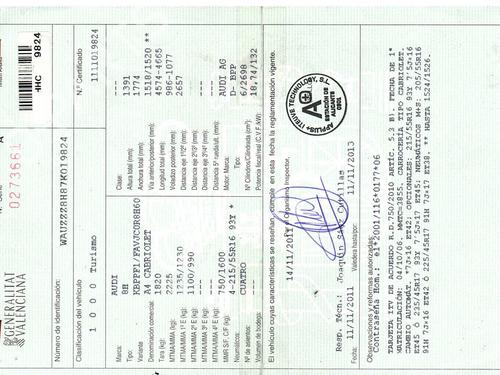 GENERALITAT
VALENCIANA
Nº Serie
A
0273661
4HC 9824
Número de identificación:
WAUZZZ8H87K019824
Nº Certificado
1111019824
Clasificación del vehículo
1 0 0 0 Turismo
Marca: AUDI
Tipo 8H
Variante
Denominación comercial: A4 CABRIOLET
Tara (kg): 1820
MTMA/MMA (kg): 2225
MTMA/MMA 1º E (kg): 1235/1230
MTMA/MMA 2º E (kg): 1100/990
MTMA/MMA 3º E (kg): ---
MTMA/MMA 4º E (kg): ---
MMR S/F: C/F (kg): 750/1600
Neumáticos: 4-215/55R16 93Y *
Nº de asientos: CUATRO
Volumen de bodega: ---
Clase: ---
Altura total (mm): 1391
Anchura total (mm): 1774
Vía anterior/posterior (mm): 1518/1520 **
Longitud total (mm): 4574-4665
Voladizo posterior (mm): 986-1077
Distancia eje 1º/2º (mm): 2657
Distancia eje 2º/3º (mm): ---
Distancia eje 3º/4º (mm): ---
Motor: Marca: AUDI AG
Motor: Tipo: D- BPP
Nº Cilindros/Cilindrada (cm³): 6/2698
Potencia fiscal/real (C.V.F./kW): 18,74/132
El vehículo cuyas características se reseñan, cumple en esta fecha la reglamentación vigente.
14/11/2011 El Organismo Inspector,
APPLUS+ ITEUVE TECHNOLOGY, S.L.
A+
ESTACIÓN DE
ALICANTE
0301
Resp. Técn.: Joaquín
Fecha: 11/11/2011 Válida hasta: 11/11/2013
Observaciones y reformas autorizadas:
Contraseña Hom.: e1*2001/116*0177*06
TARJETA ITV DE ACUERDO R.D.750/2010 ARTIC. 5.3 B). FECHA DE 1ª
MATRICULACIÓN: 04/10/06. MMTC=3855. CARROCERÍA TIPO CABRIOLET.
CAMBIO AUTOMÁT. *7J*16 ET42; OPCIONALES: 215/55R16 93Y 7'5J*16
ET45 Ó 235/45R17 93Y 7'5J*17 ET45; NEUMÁTICOS M+S: 205/55R16
91H 7J*16 ET42 Ó 225/45R17 91H 7J*17 ET38. ** HASTA 1524/1526.